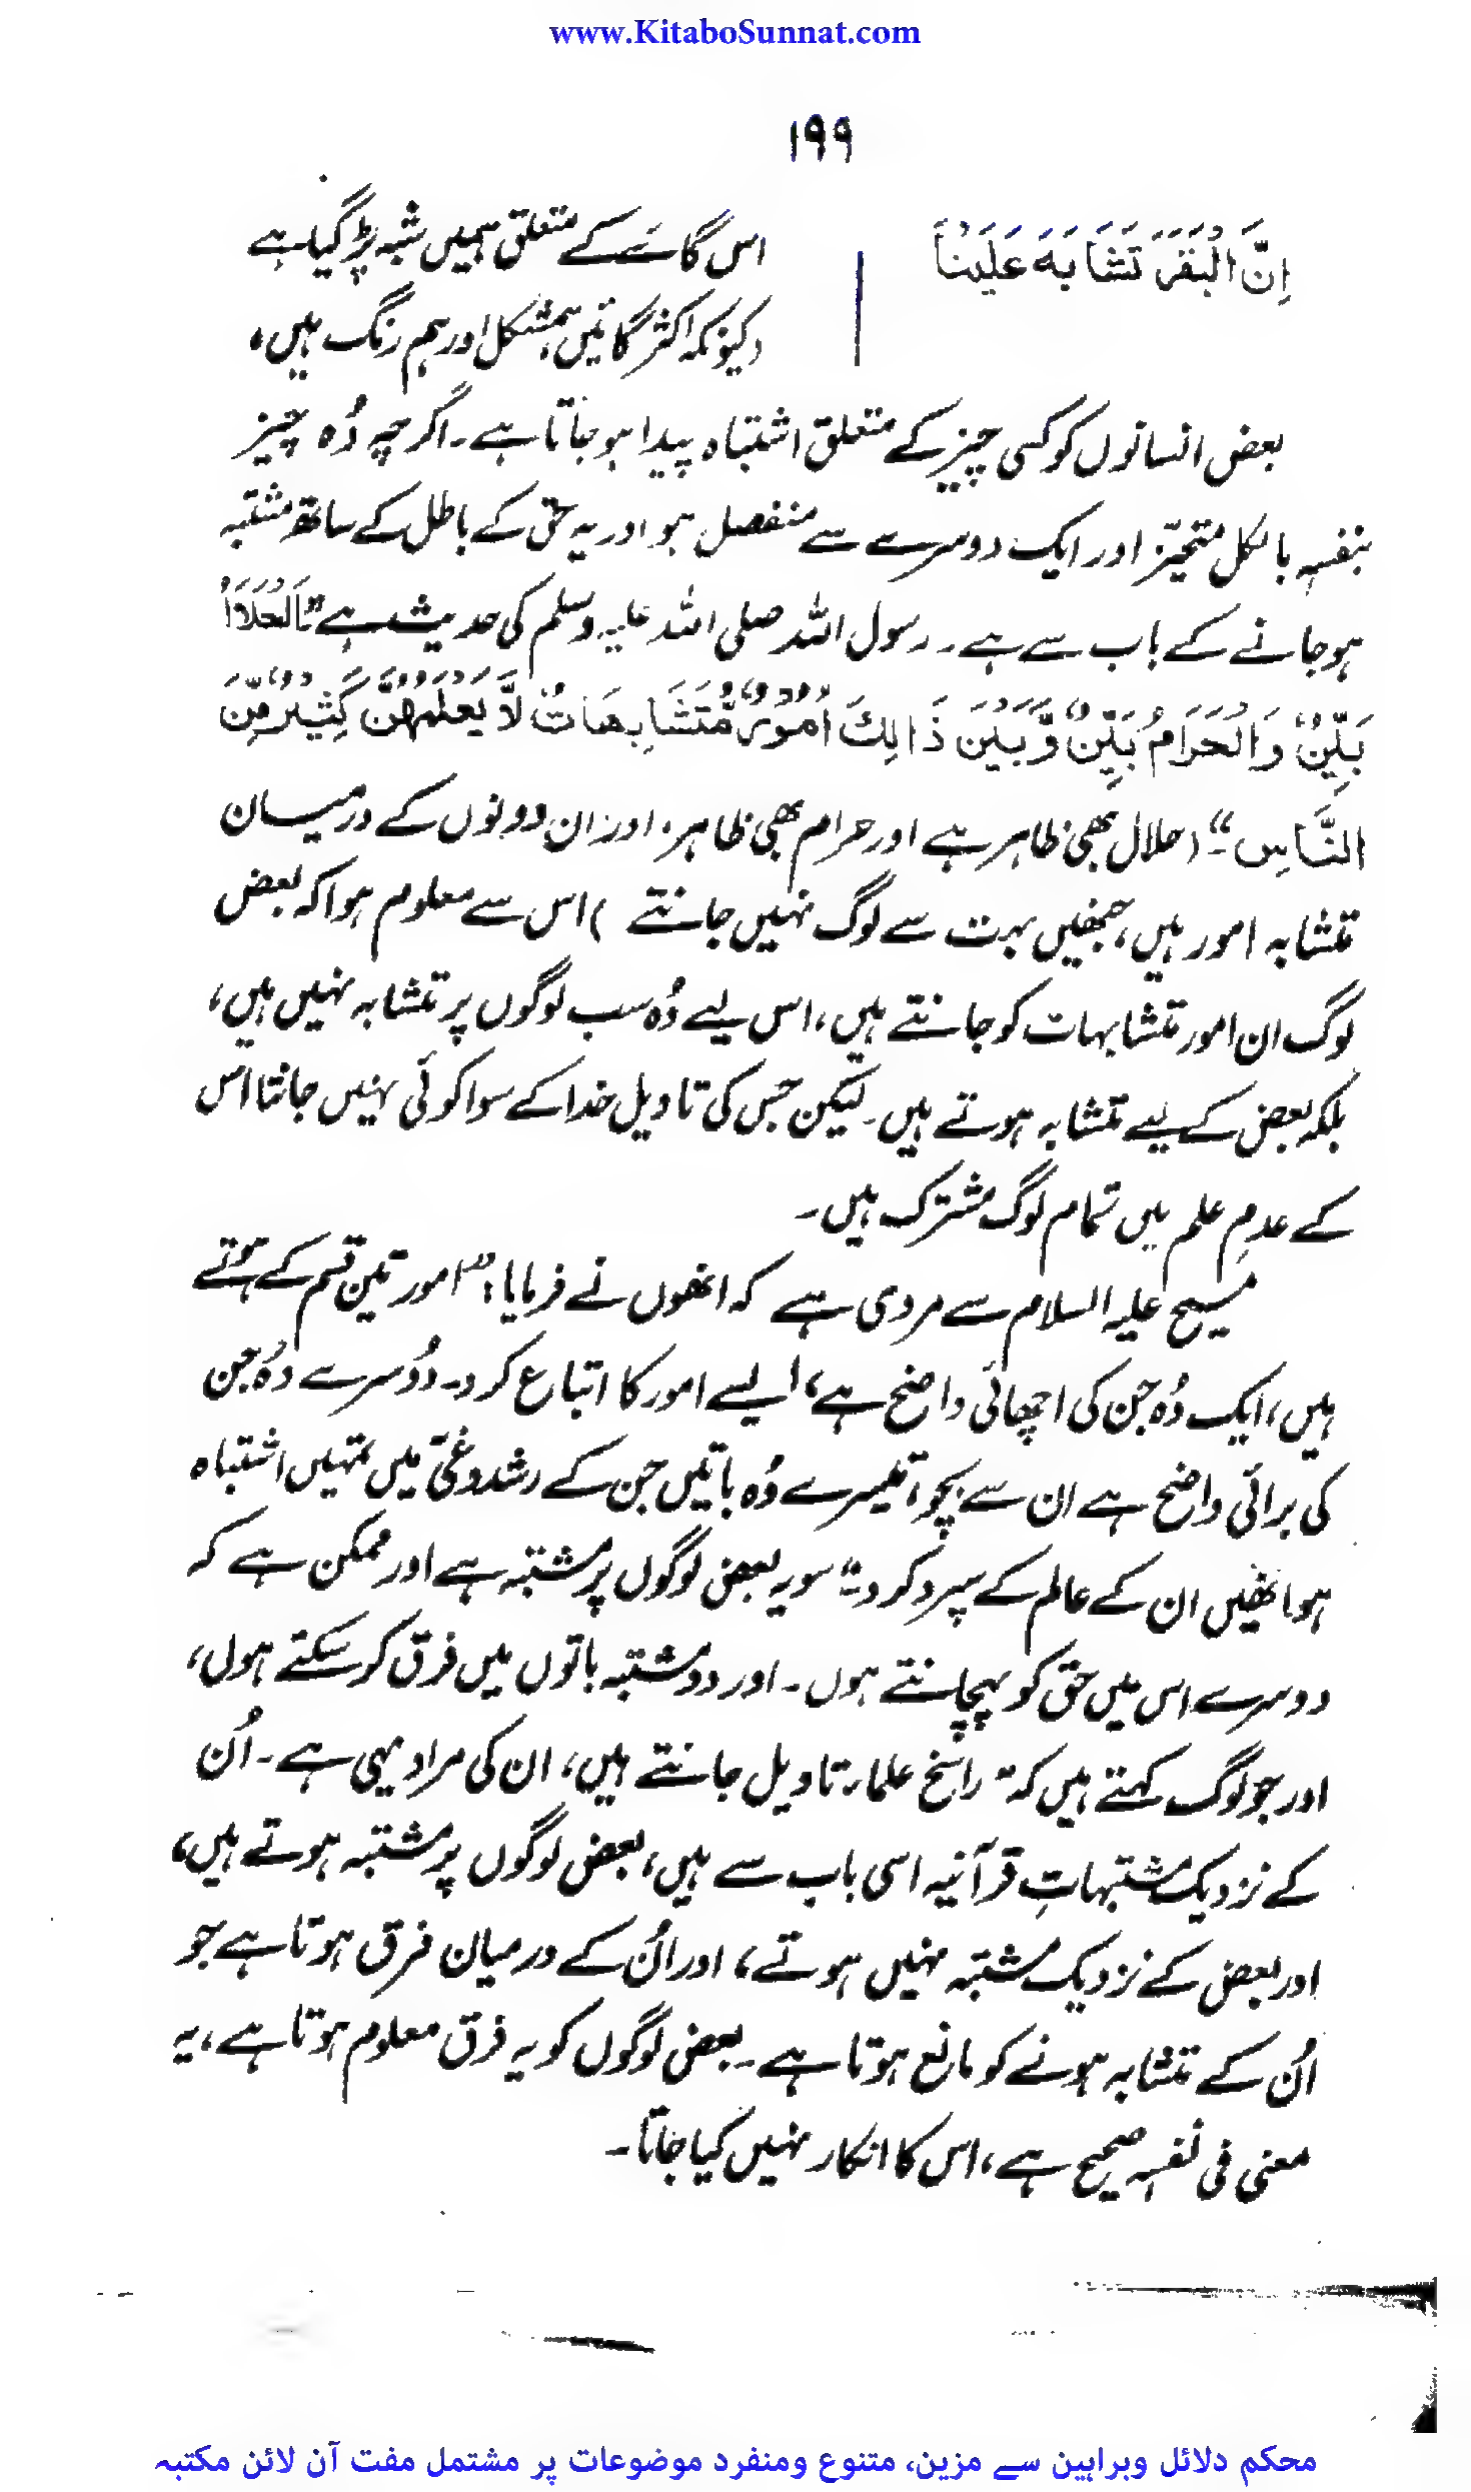 www.KitaboSunnat.com
۱۹۹
اِنَّ الْبَقَرَ تَشَابَهَ عَلَيْنَا
اس گائے کے متعلق ہمیں شبہ پڑ گیا ہے
(کیونکہ اکثر گائیں ہمشکل اور ہم رنگ ہیں،
بعض انسانوں کو کسی چیز کے متعلق اشتباہ پیدا ہو جاتا ہے۔ اگرچہ وُہ چیز
بنفسہٖ بالکل متحیّز اور ایک دوسرے سے منفصل ہو اور یہ حق کے باطل کے ساتھ مشتبہ
ہو جانے کے باب سے ہے۔ رسول اللہ صلی اللہ علیہ وسلم کی حدیث ہے "اَلْحَلَالُ
بَيِّنٌ وَالْحَرَامُ بَيِّنٌ وَّبَيْنَ ذَالِكَ اُمُوْرٌ مُّتَشَابِهَاتٌ لَّا يَعْلَمُهُنَّ كَثِيْرٌ مِّنَ
النَّاسِ"۔ (حلال بھی ظاہر ہے اور حرام بھی ظاہر، اور ان دونوں کے درمیان
متشابہ امور ہیں، جنھیں بہت سے لوگ نہیں جانتے) اس سے معلوم ہوا کہ بعض
لوگ ان امور متشابہات کو جانتے ہیں، اس لیے وُہ سب لوگوں پر متشابہ نہیں ہیں،
بلکہ بعض کے لیے متشابہ ہوتے ہیں۔ لیکن جس کی تاویل خدا کے سوا کوئی نہیں جانتا اس
کے عدمِ علم میں تمام لوگ مشترک ہیں۔
مسیح علیہ السلام سے مروی ہے کہ انھوں نے فرمایا: "امور تین قسم کے ہوتے
ہیں، ایک وُہ جن کی اچھائی واضح ہے، ایسے امور کا اتباع کرو۔ دُوسرے وُہ جن
کی برائی واضح ہے ان سے بچو، تیسرے وُہ باتیں جن کے رشد و غیّ میں تمہیں اشتباہ
ہو انھیں ان کے عالم کے سپرد کر دو۔" سو یہ بعض لوگوں پر مشتبہ ہے اور ممکن ہے کہ
دوسرے اس میں حق کو پہچانتے ہوں۔ اور دو مشتبہ باتوں میں فرق کر سکتے ہوں،
اور جو لوگ کہتے ہیں کہ "راسخ علماء تاویل جانتے ہیں، ان کی مراد یہی ہے۔ اُن
کے نزدیک مشتبہاتِ قرآنیہ اسی باب سے ہیں، بعض لوگوں پر مشتبہ ہوتے ہیں،
اور بعض کے نزدیک مشتبہ نہیں ہوتے، اور اُن کے درمیان فرق ہوتا ہے جو
اُن کے متشابہ ہونے کو مانع ہوتا ہے۔ بعض لوگوں کو یہ فرق معلوم ہوتا ہے، یہ
معنی فی نفسہٖ صحیح ہے، اس کا انکار نہیں کیا جاتا۔
محکم دلائل وبراہین سے مزین، متنوع ومنفرد موضوعات پر مشتمل مفت آن لائن مکتبہ